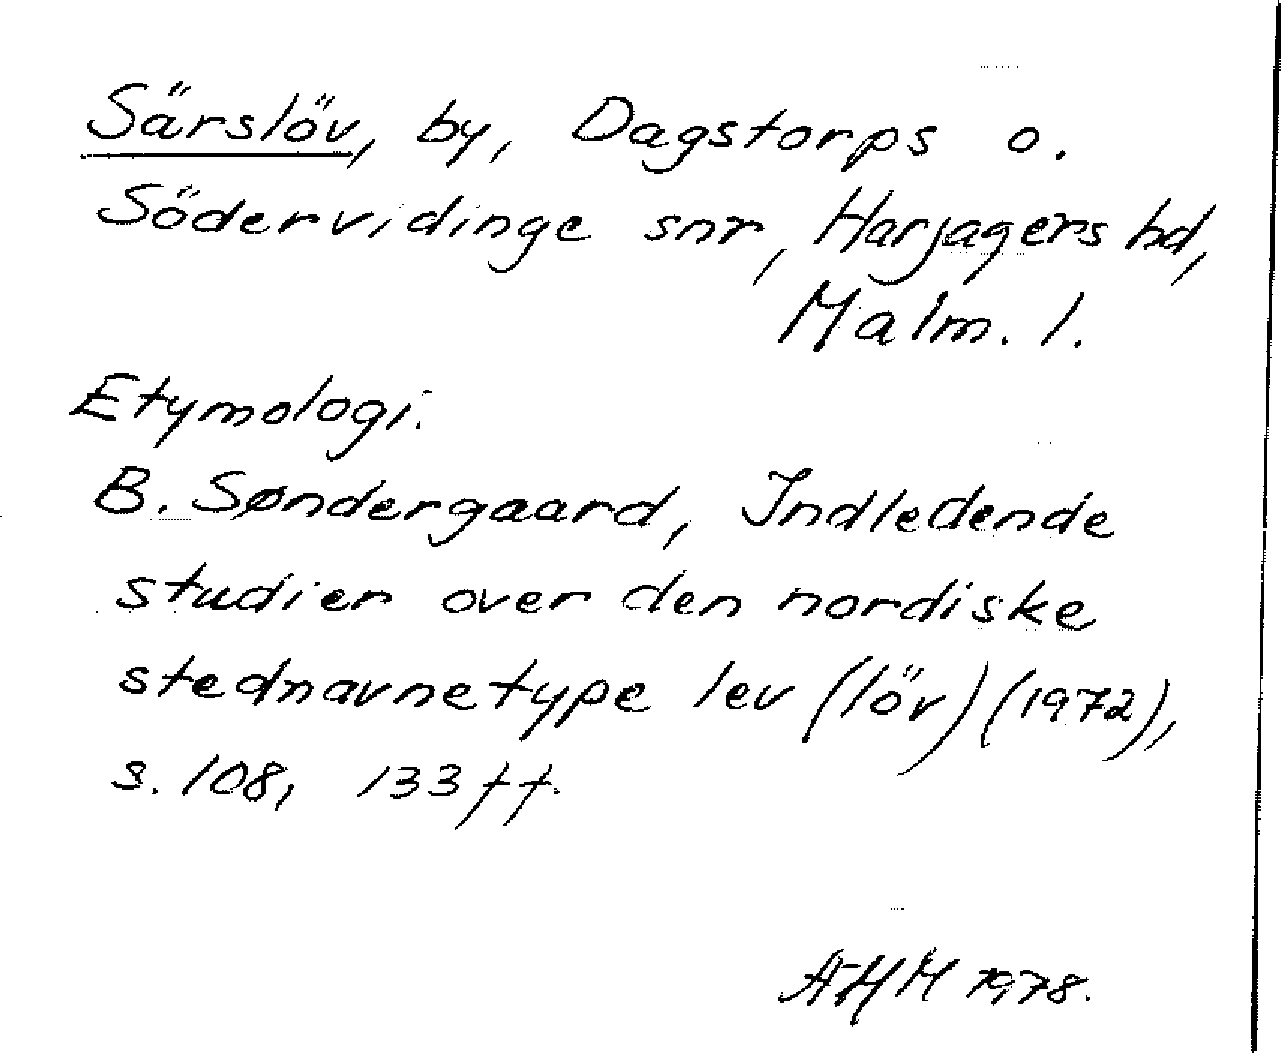 Särslöv, by, Dagstorps o.
Södervidinge snr, Harjagers hd,
Malm. l.
Etymologi.
B. Søndergaard, Indledende
studier over den nordiske
stednavnetype lev (löv) (1972),
s. 108, 133 ff.
AHM 1978.